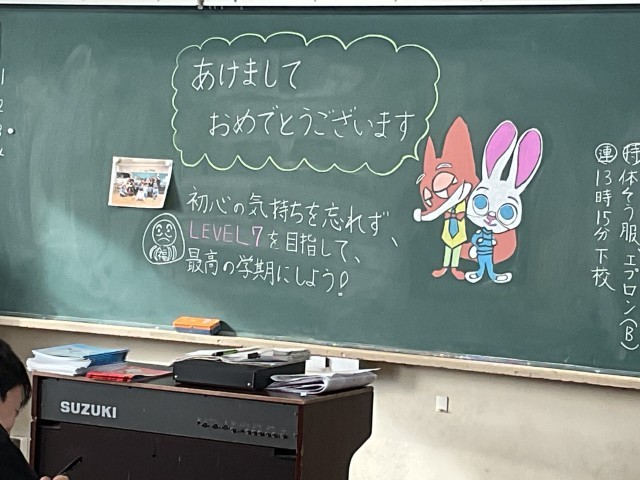 あけまして
おめでとうございます
初心の気持ちを忘れず、
LEVEL7を目指して、
最高の学期にしよう!
福
持 体そう服、エプロン(B)
連 13時15分下校
1
2
3
4
SUZUKI